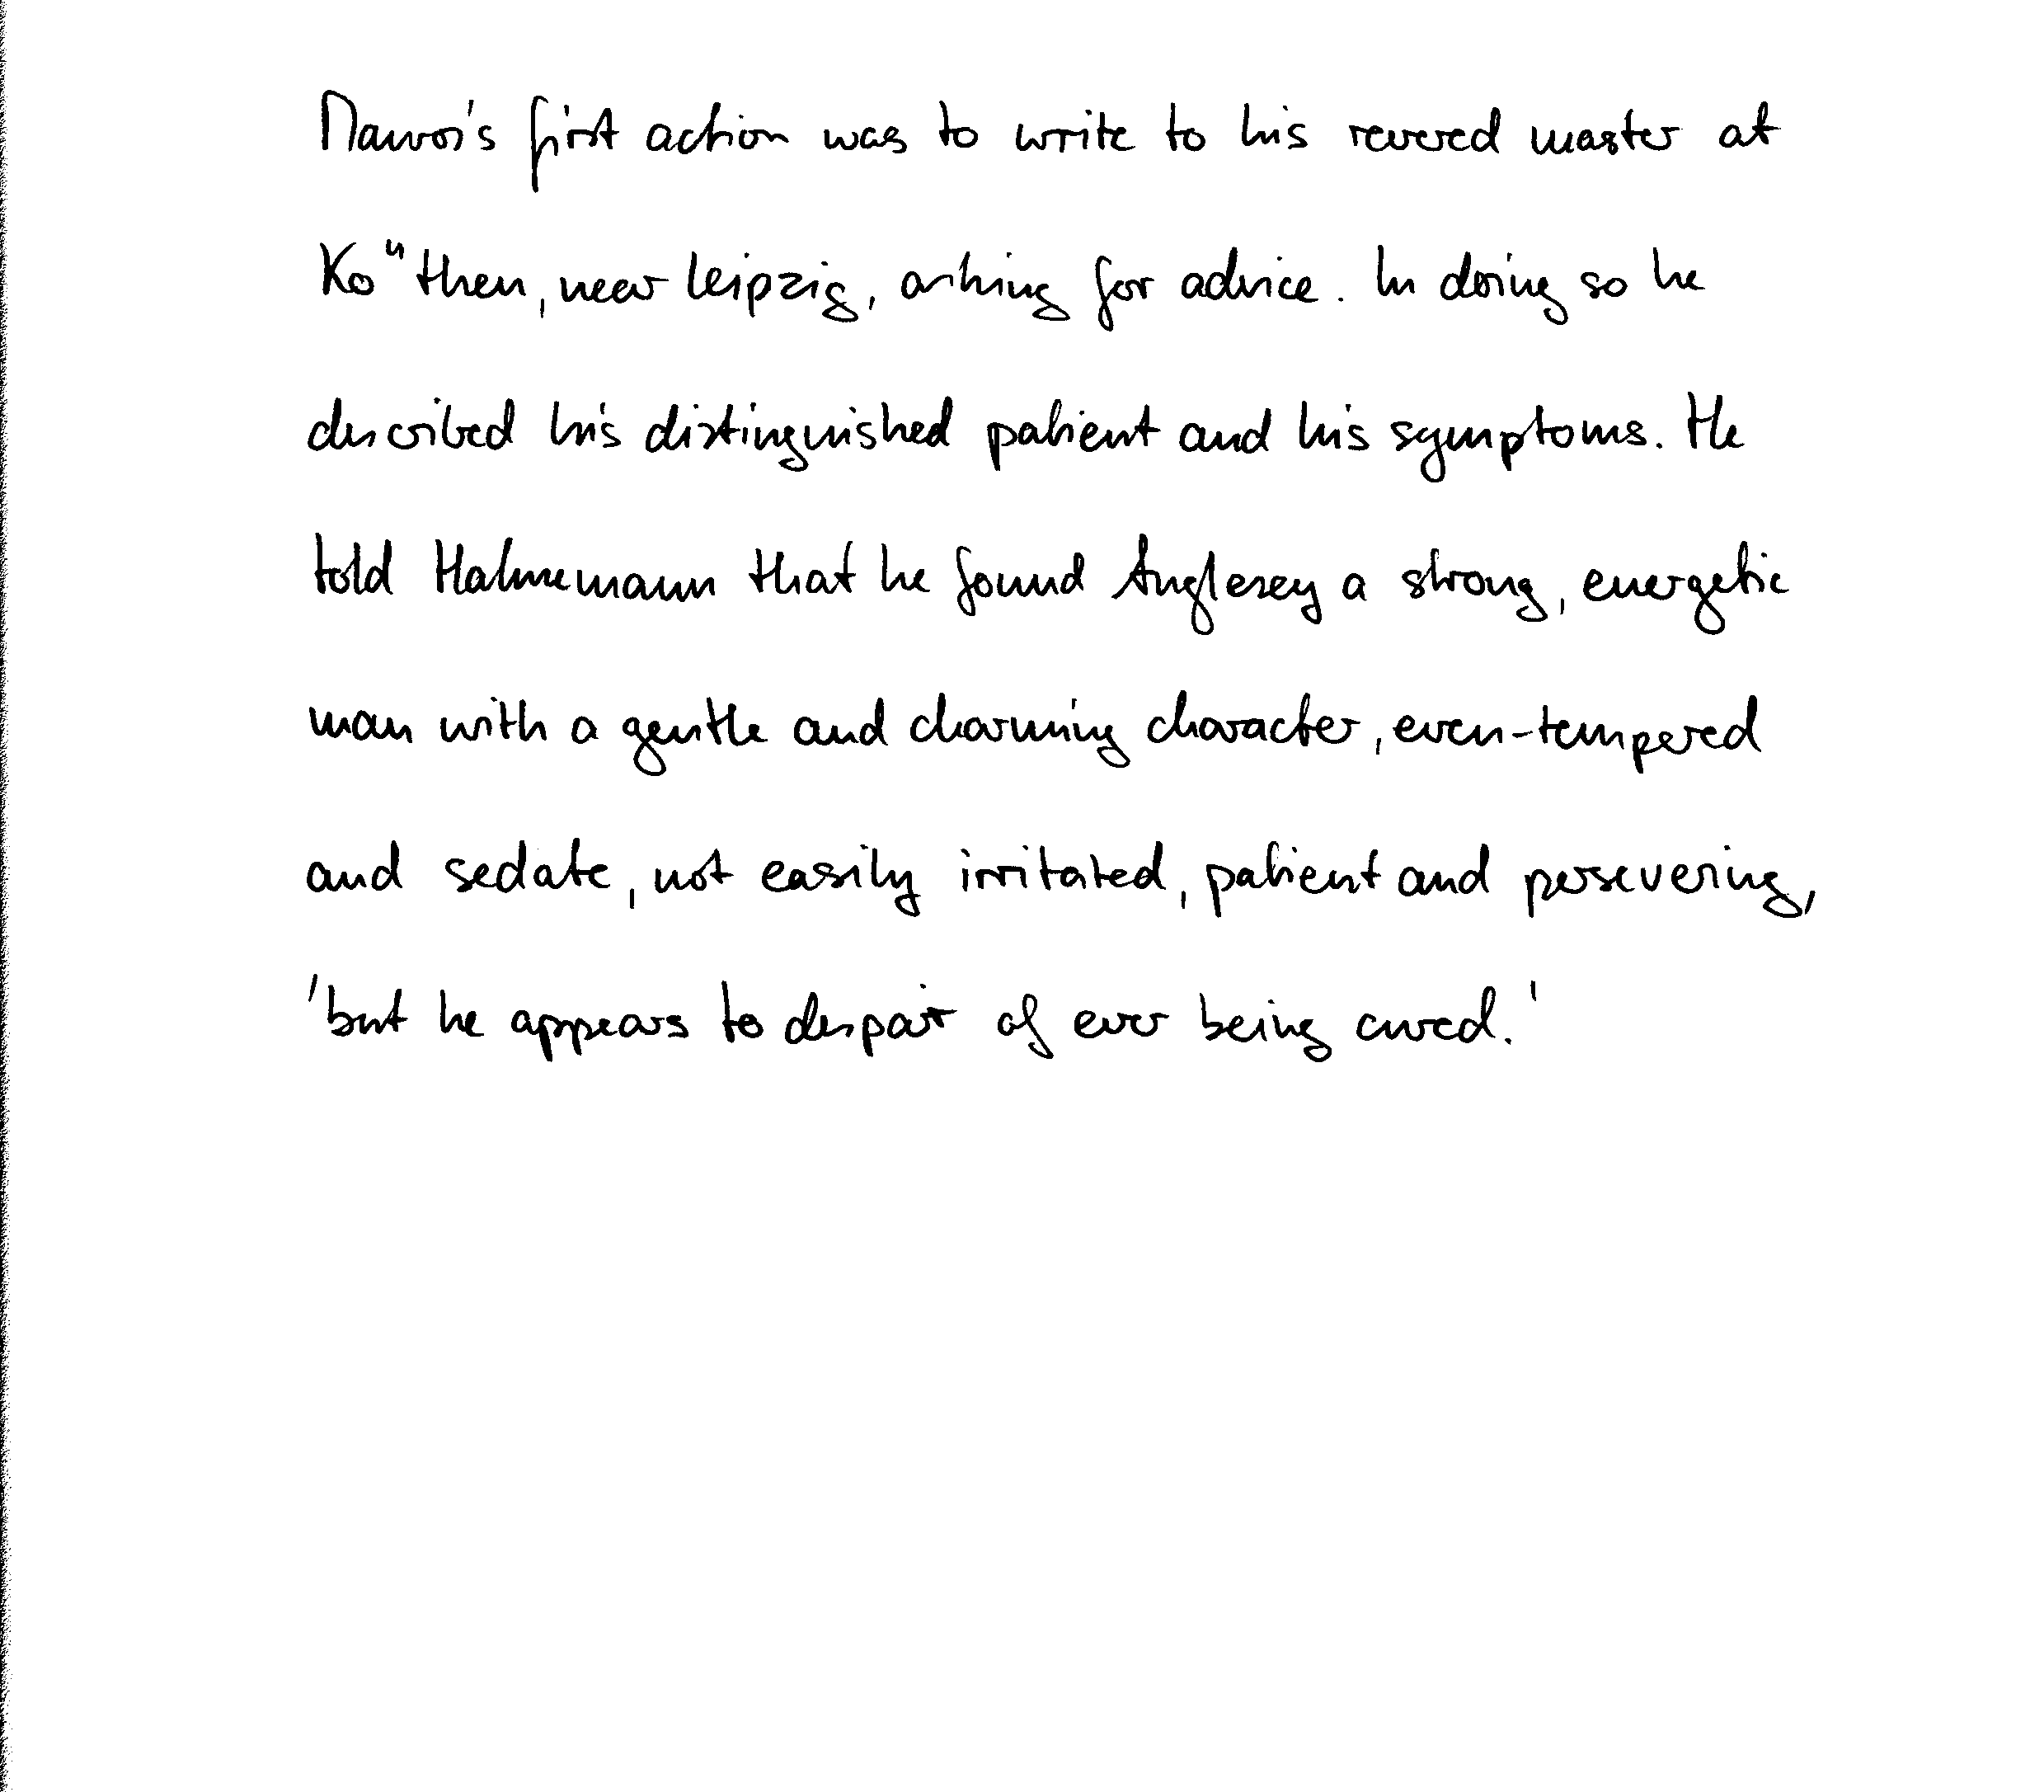 Mauro's first action was to write to his revered master at
Ko"then, near Leipzig, asking for advice. In doing so he
described his distinguished patient and his symptoms. He
told Hahnemann that he found Anglesey a strong, energetic
man with a gentle and charming character, even-tempered
and sedate, not easily irritated, patient and persevering,
'but he appears to despair of ever being cured.'